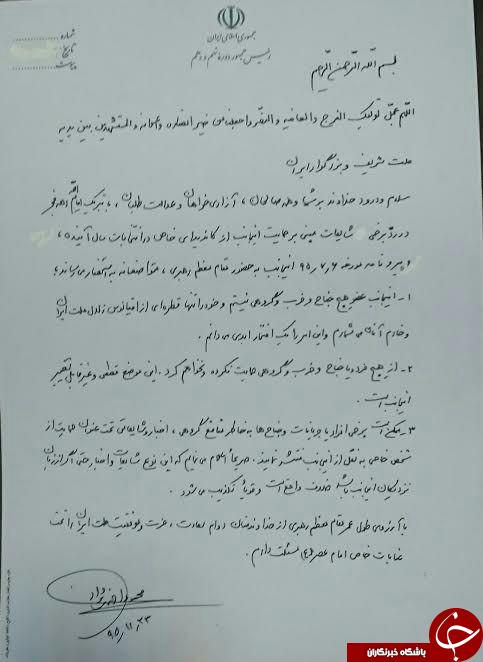 شماره
تاریخ
پیوست
جمهوری اسلامی ایران
رئیس جمهور دوره نهم و دهم
بسم الله الرحمن الرحیم
اللهم عجل لولیک الفرج والعافیه والنصر واجعلنا من خیر انصاره واعوانه والمستشهدین بین یدیه
ملت شریف و بزرگوار ایران
سلام و درود خداوند بر شما و همه صالحان، آزادی خواهان و عدالت طلبان، با تبریک ایام الله دهه فجر
در رد برخی شایعات مبنی بر حمایت اینجانب از کاندیدای خاص در انتخابات سال آینده،
و پیرو نامه مورخه ۹۵/۷/۶ اینجانب به حضور مقام معظم رهبری، متواضعانه به استحضار می رساند؛
۱- اینجانب عضو هیچ جناح و حزب و گروهی نیستم و خود را تنها قطره ای از اقیانوس زلال ملت ایران
و خادم آنان می شمارم و این امر را یک افتخار ابدی می دانم.
۲- از هیچ فرد یا جناح و حزب و گروهی حمایت نکرده و نخواهم کرد. این موضع قطعی و غیر قابل تغییر
اینجانب است.
۳- ممکن است برخی افراد یا جریانات و جناح ها به خاطر منافع گروهی، اخبار و شایعاتی تحت عنوان حمایت از
شخص خاصی به نقل از اینجانب منتشر نمایند. صریحاً اعلام می نمایم که این نوع شایعات و اخبار حتی اگر از زبان
نزدیکان اینجانب باشد خلاف واقع است و قویاً تکذیب می شود.
با آرزوی طول عمر مقام معظم رهبری از خداوند منان دوام سعادت، عزت و موفقیت ملت ایران را تحت
عنایات خاص امام عصر (عج) مسئلت دارم.
محمود احمدی نژاد
۹۵/۱۱/۲۳
باشگاه خبرنگاران